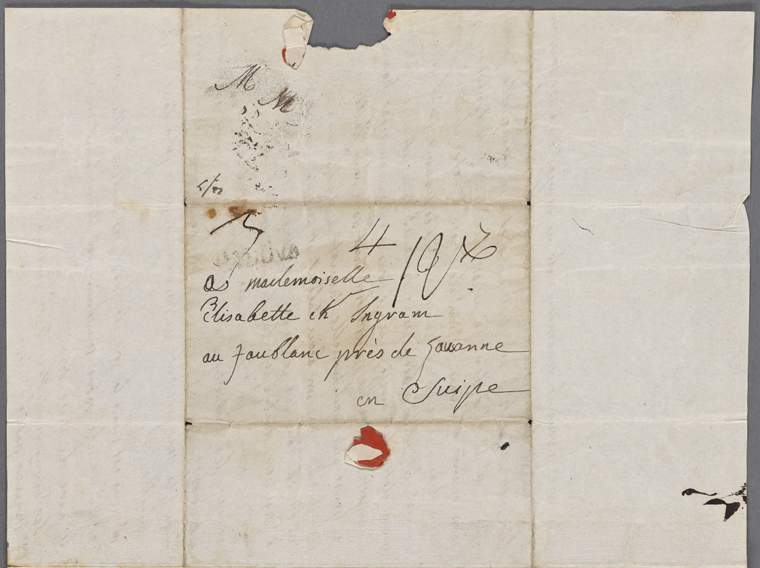 M
M
4
à mademoiselle
Elisabette ch Ingram
au Jaublanc près de Lausanne
en Suisse